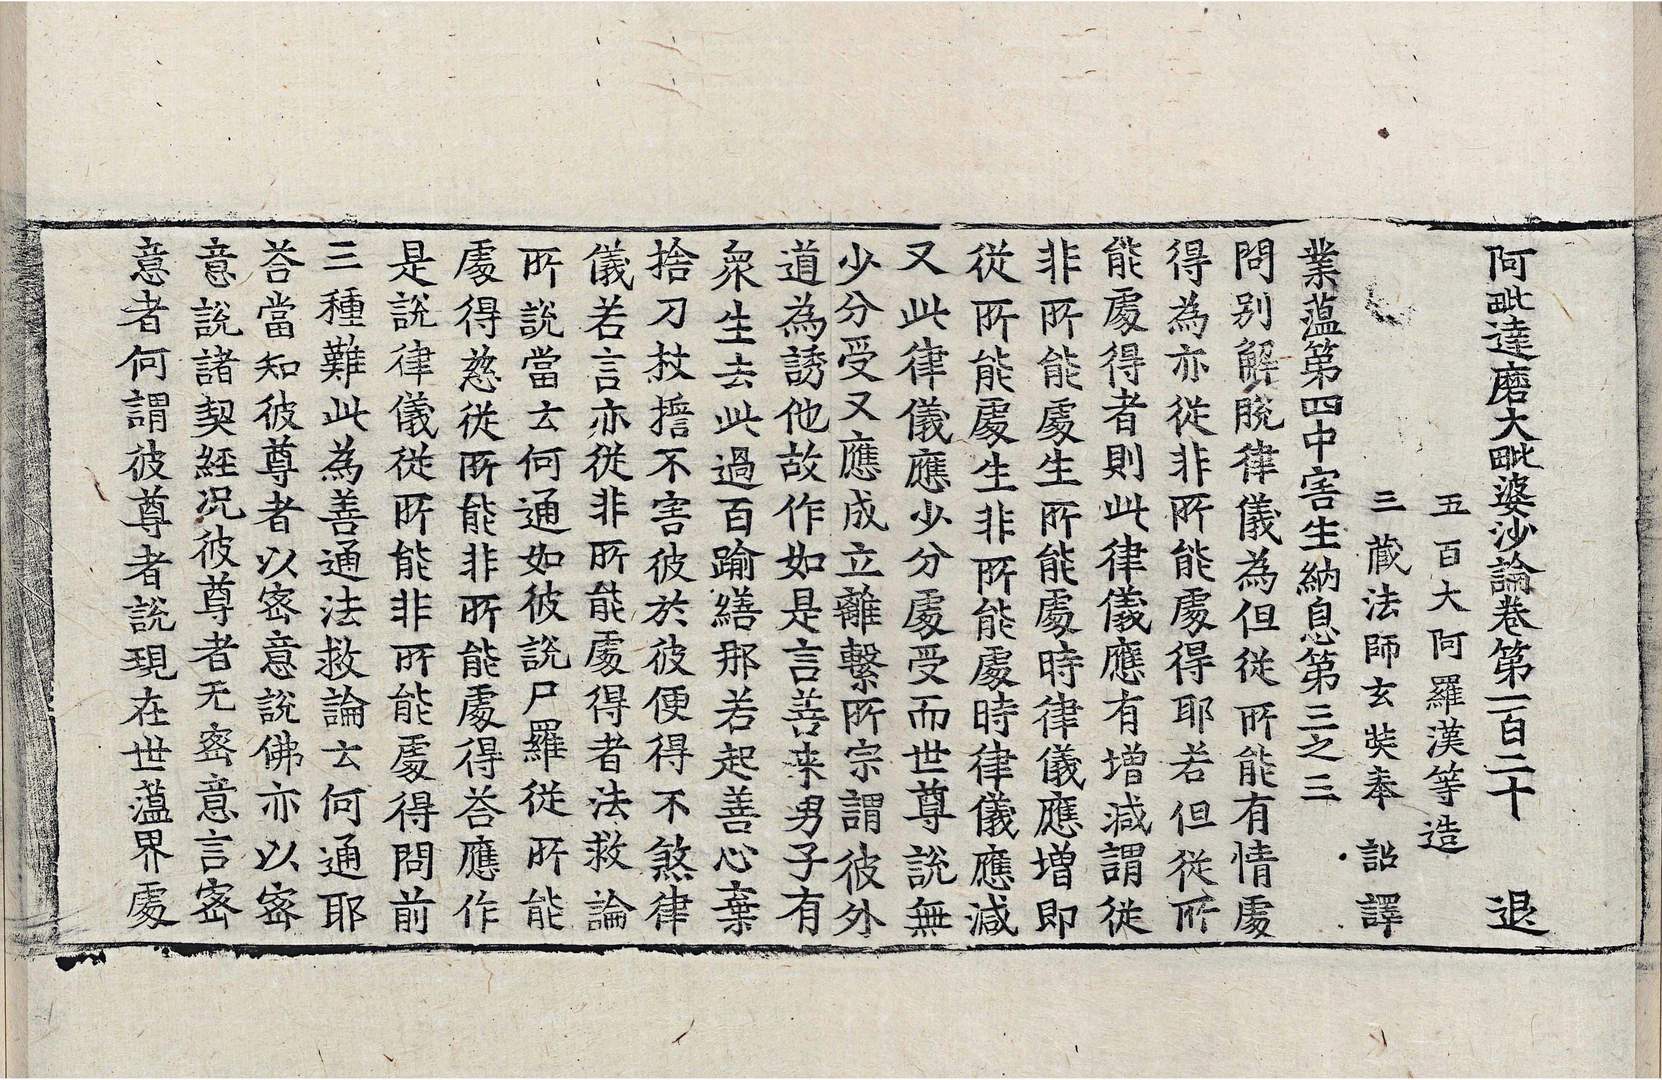 阿毗達磨大毗婆沙論卷第一百二十　退
五百大阿羅漢等造
三藏法師玄奘奉　詔譯
業蕰第四中害生納息第三之三
問別解脫律儀為但從所能有情處
得為亦從非所能處得耶若但從所
能處得者則此律儀應有增減謂從
非所能處生所能處時律儀應增即
從所能處生非所能處時律儀應減
又此律儀應少分處受而世尊說無
少分受又應成立離繫所宗謂彼外
道為誘他故作如是言善来男子有
衆生去此過百踰繕那若起善心棄
捨刀杖擔不害彼於彼便得不煞律
儀若言亦從非所能處得者法救論
所說當云何通如彼說尸羅從所能
處得慈從所能非所能處得荅應作
是說律儀從所能非所能處得問前
三種難此為善通法救論云何通耶
荅當知彼尊者以密意說佛亦以密
意說諸契経况彼尊者无密意言密
意者何謂彼尊者說現在世蕰界處